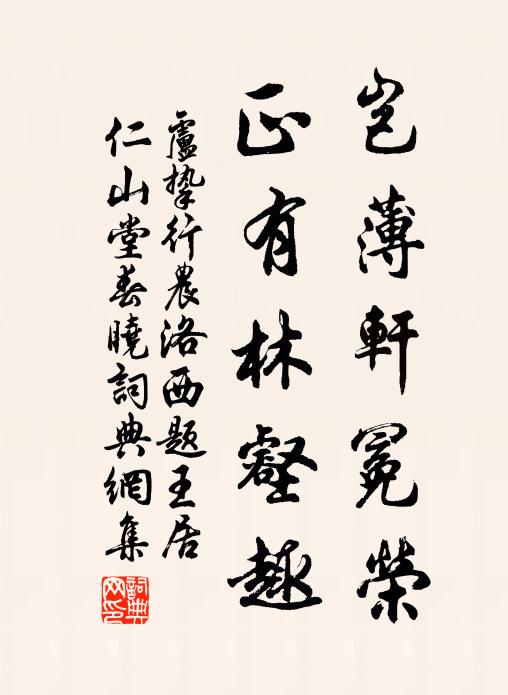 豈薄軒冕榮
正有林壑趣
盧摯行農洛西題王居
仁山堂春曉詞典網集
詞典網印